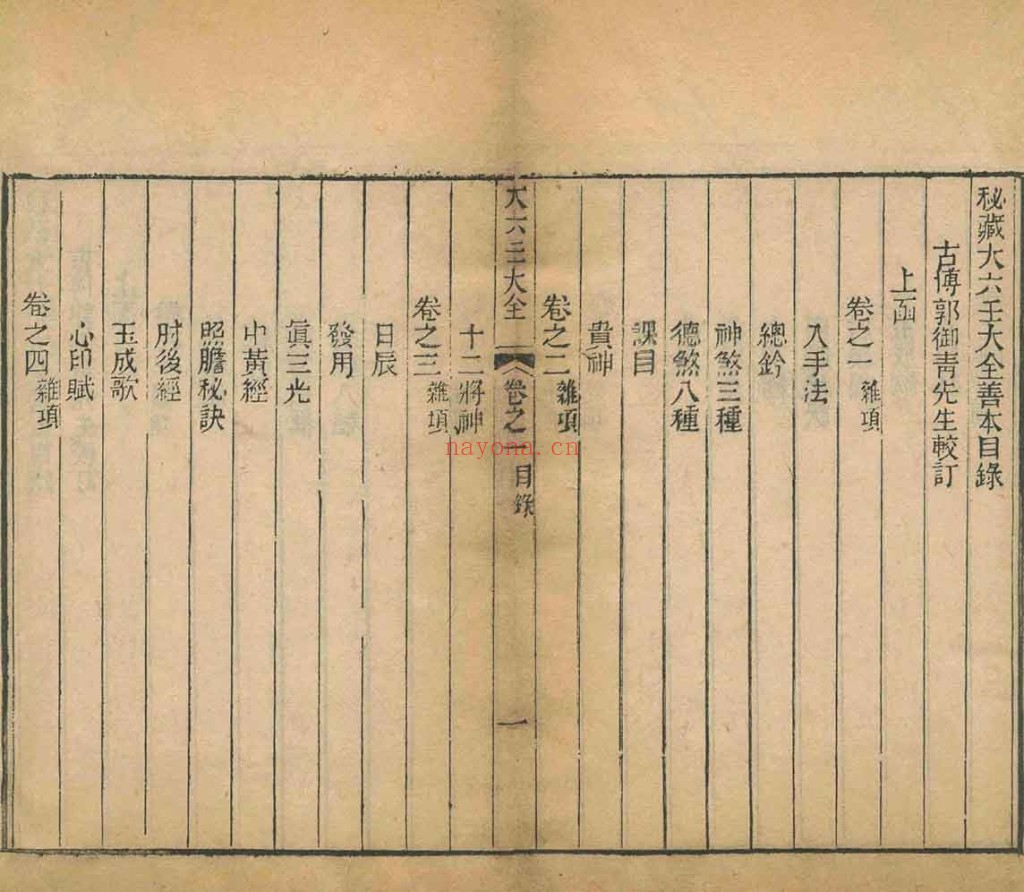 秘藏大六壬大全善本目錄
古傳郭御靑先生較訂
上函
卷之一 雜項
入手法
總鈐
神煞三種
德煞八種
課目
貴神
卷之二 雜項
大六壬大全 卷之一 目錄 一
十二將神
卷之三 雜項
日辰
發用
眞三光
中黃經
照膽秘訣
肘後經
玉成歌
心印賦
卷之四 雜項
nayona.cn